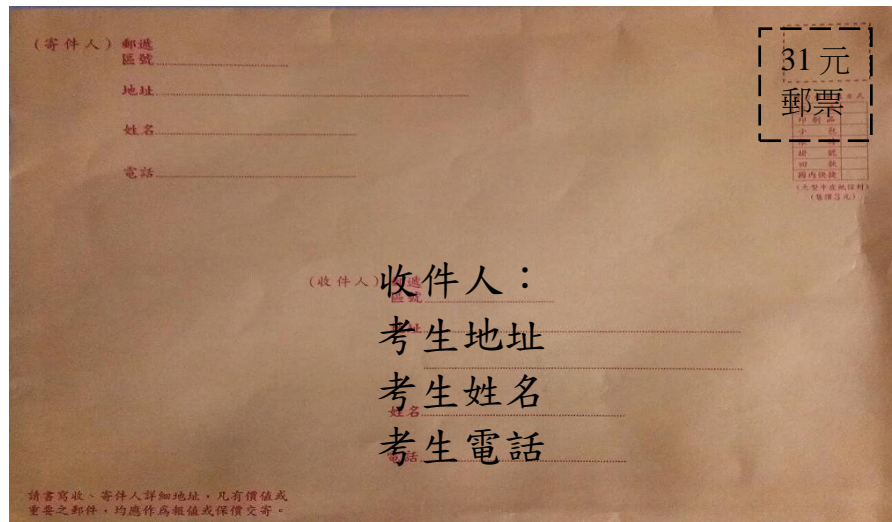 (寄件人) 郵遞
區號
地址
姓名
電話
31 元
郵票
印刷品
小包
掛號
回執
國內快捷
(大型牛皮紙信封)
(收件人)
收件人：
區號
考生地址
考生姓名
姓名
考生電話
電話
請書寫收、寄件人詳細地址，凡有價值或
重要之郵件，均應作為報值或保價交寄。